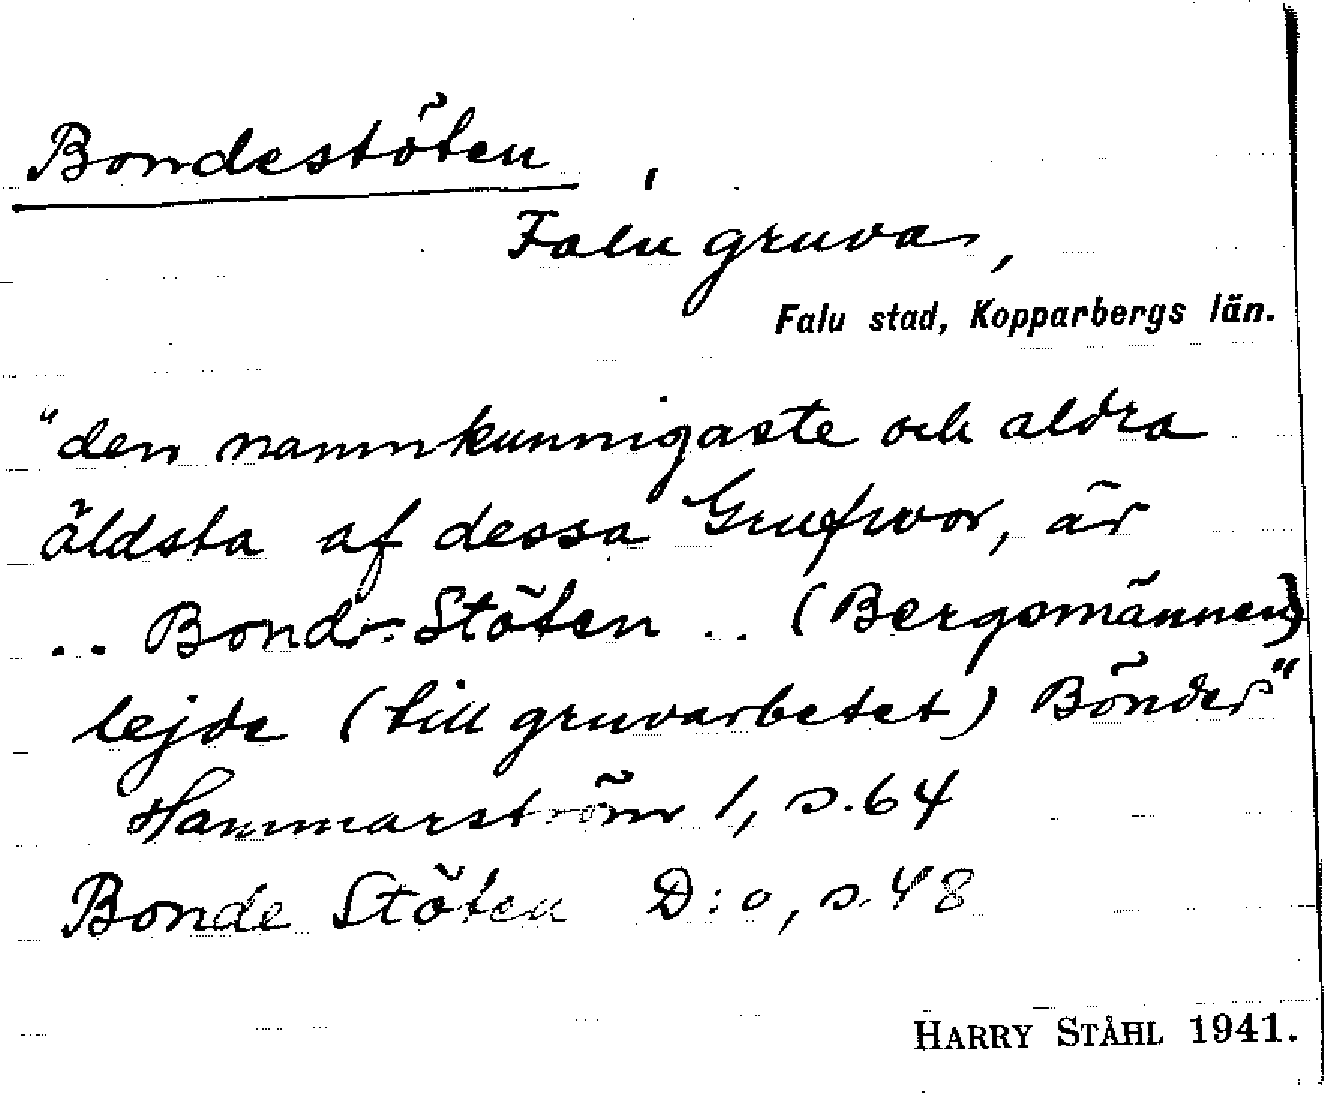 Bondestöten,
Falu gruva,
Falu stad, Kopparbergs län.
"den namnkunnigaste och aldra
äldsta af dessa Grufwor, är
.. Bonde-Stöten .. (Bergsmännen)
lejde (till gruvarbetet) Bönder"
Hammarström 1, s. 64
Bonde Stöten D:o, s. 48
HARRY STÅHL 1941.